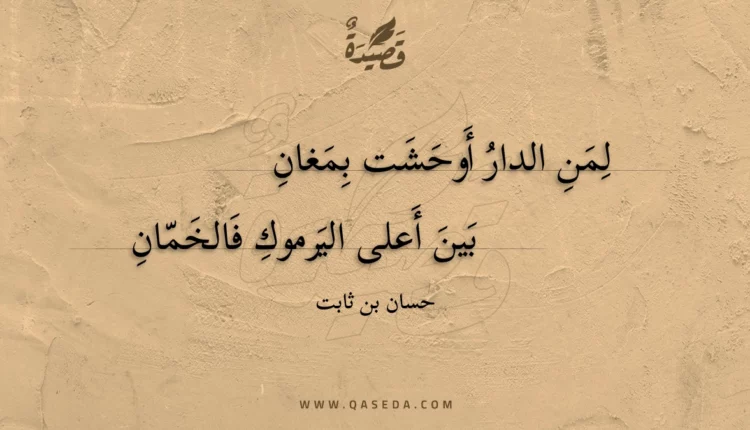 قَصِيدَةٌ
لِمَنِ الدارُ أَوحَشَت بِمَغانِ
بَينَ أَعلى اليَرموكِ فَالخَمّانِ
حسان بن ثابت
WWW.QASEDA.COM